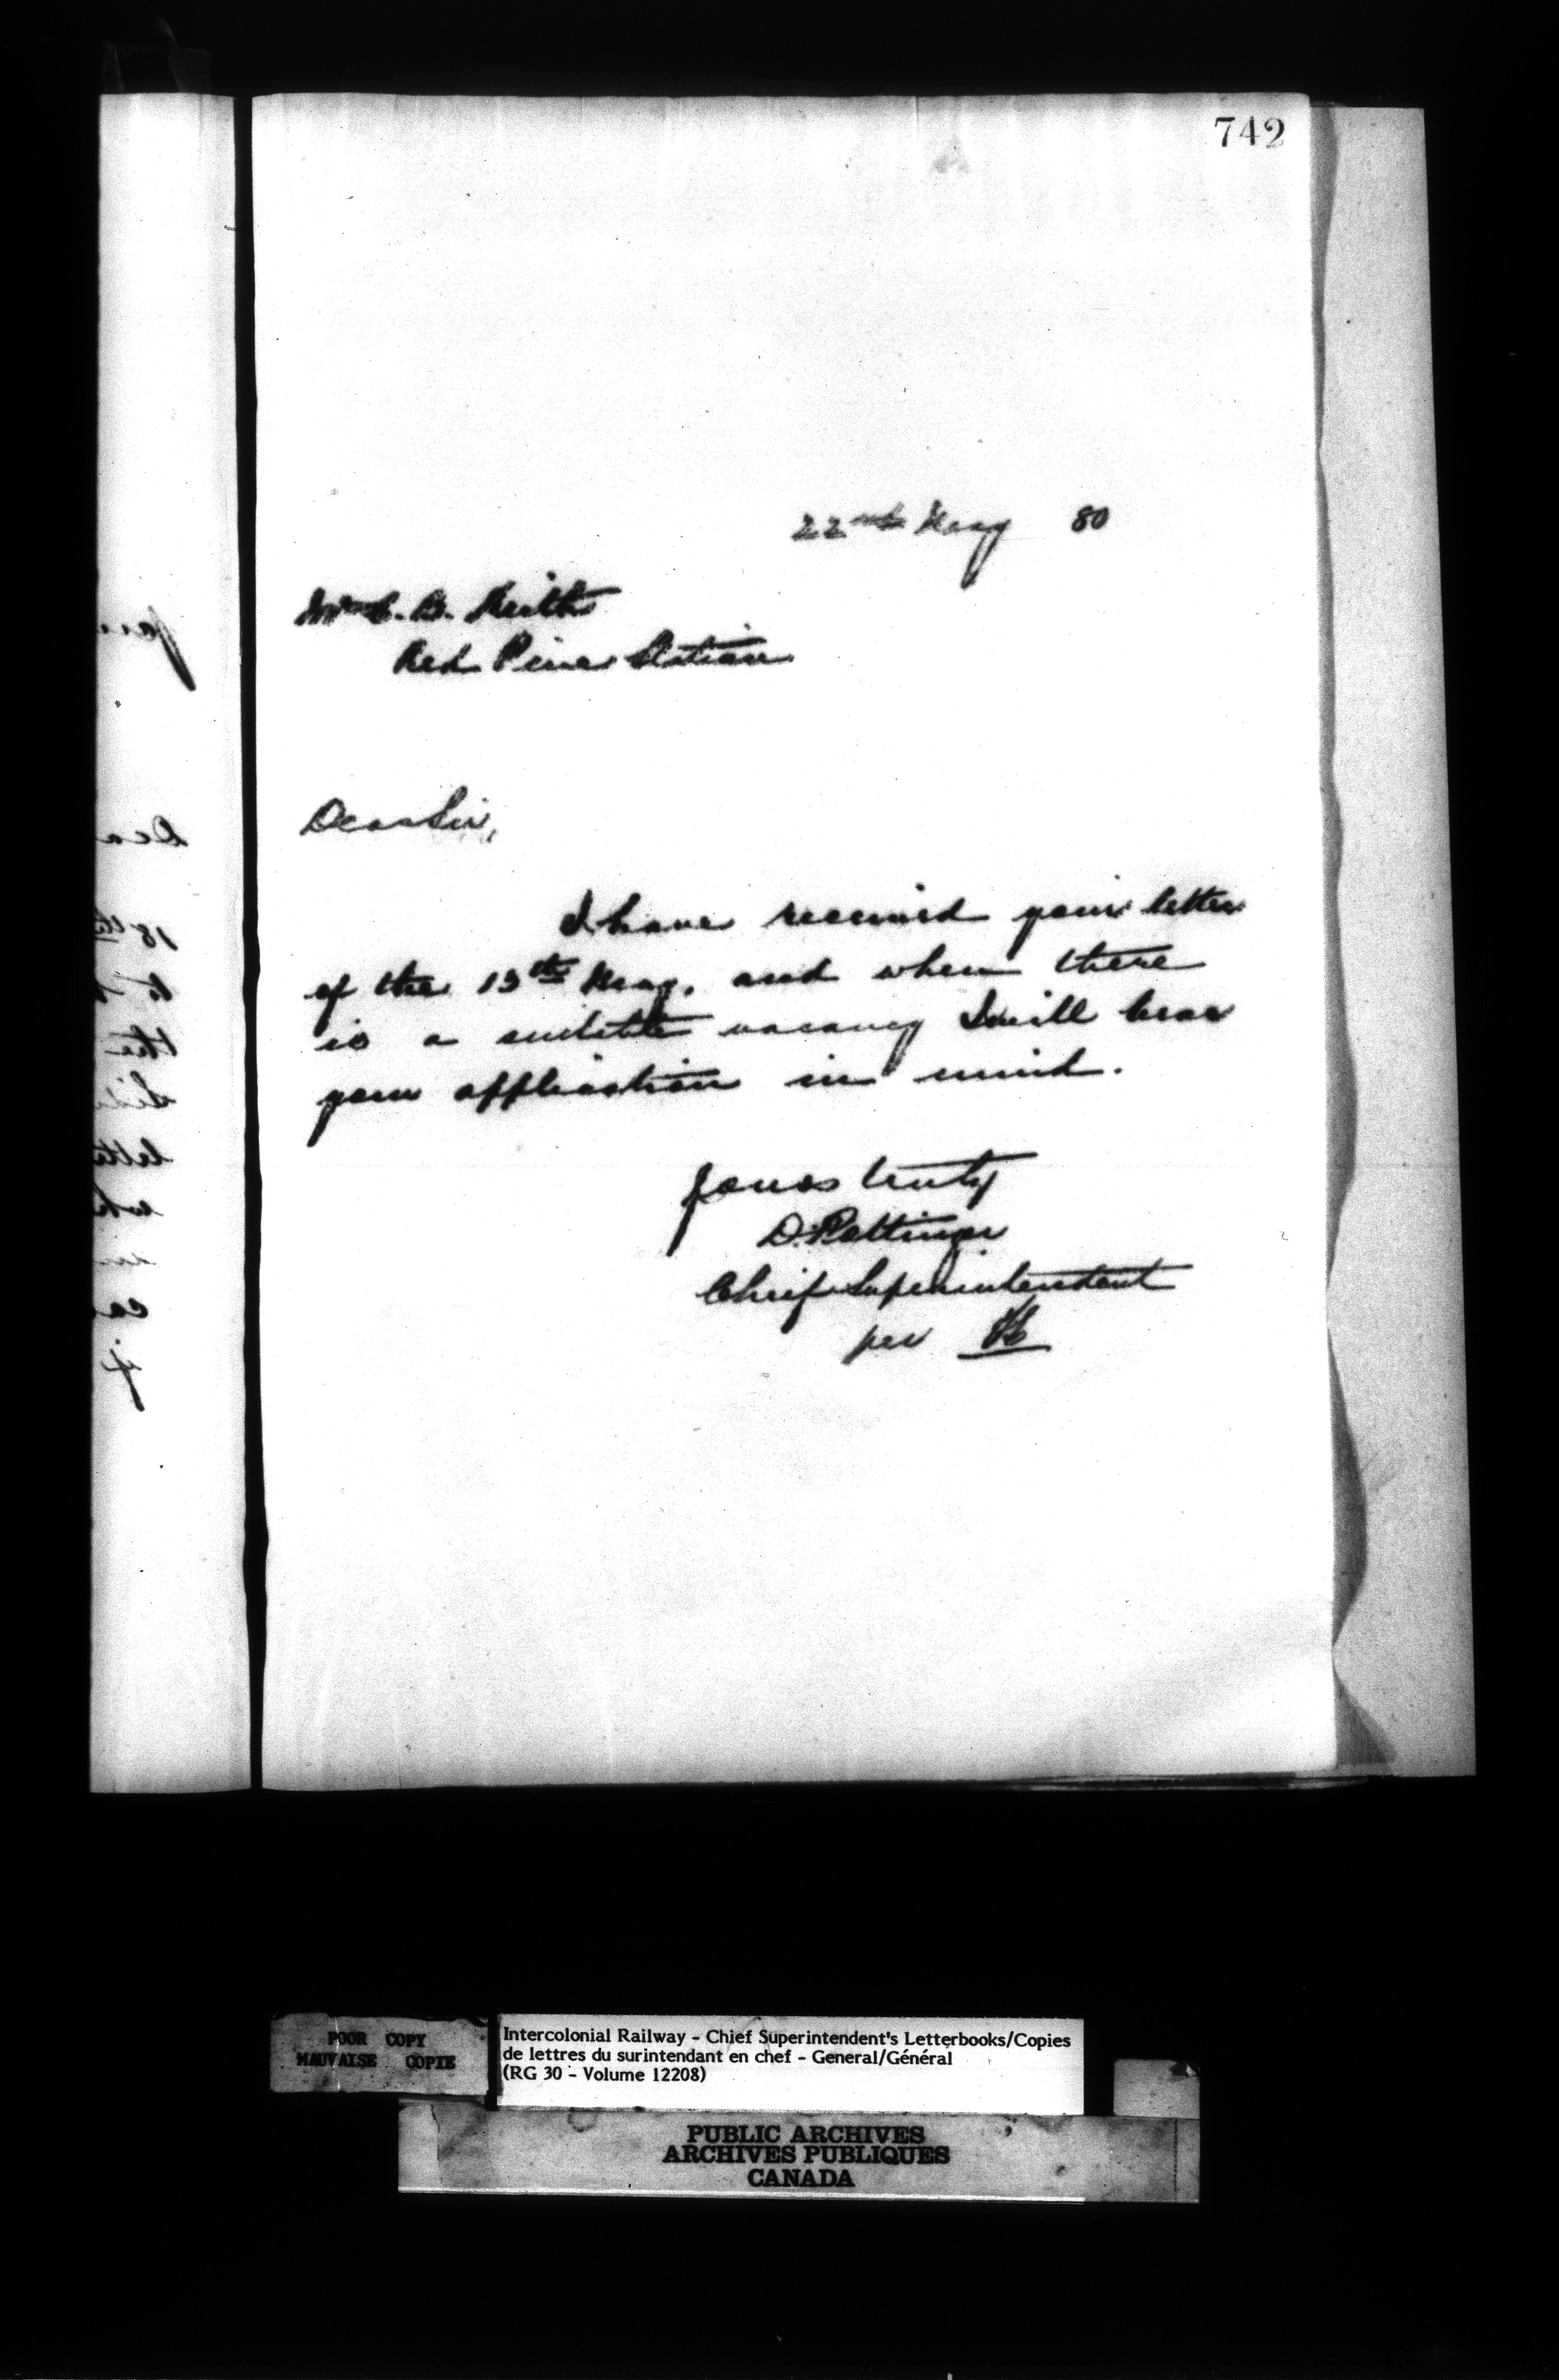 742
22nd May 80
Mr C. B. Keith
Red Pine Station
Dear Sir,
I have received your letter
of the 13th May, and when there
is a suitable vacancy I will bear
your application in mind.
Yours truly
D. Pottinger
Chief Superintendent
per
POOR COPY
MAUVAISE COPIE
Intercolonial Railway - Chief Superintendent's Letterbooks/Copies
de lettres du surintendant en chef - General/Général
(RG 30 - Volume 12208)
PUBLIC ARCHIVES
ARCHIVES PUBLIQUES
CANADA